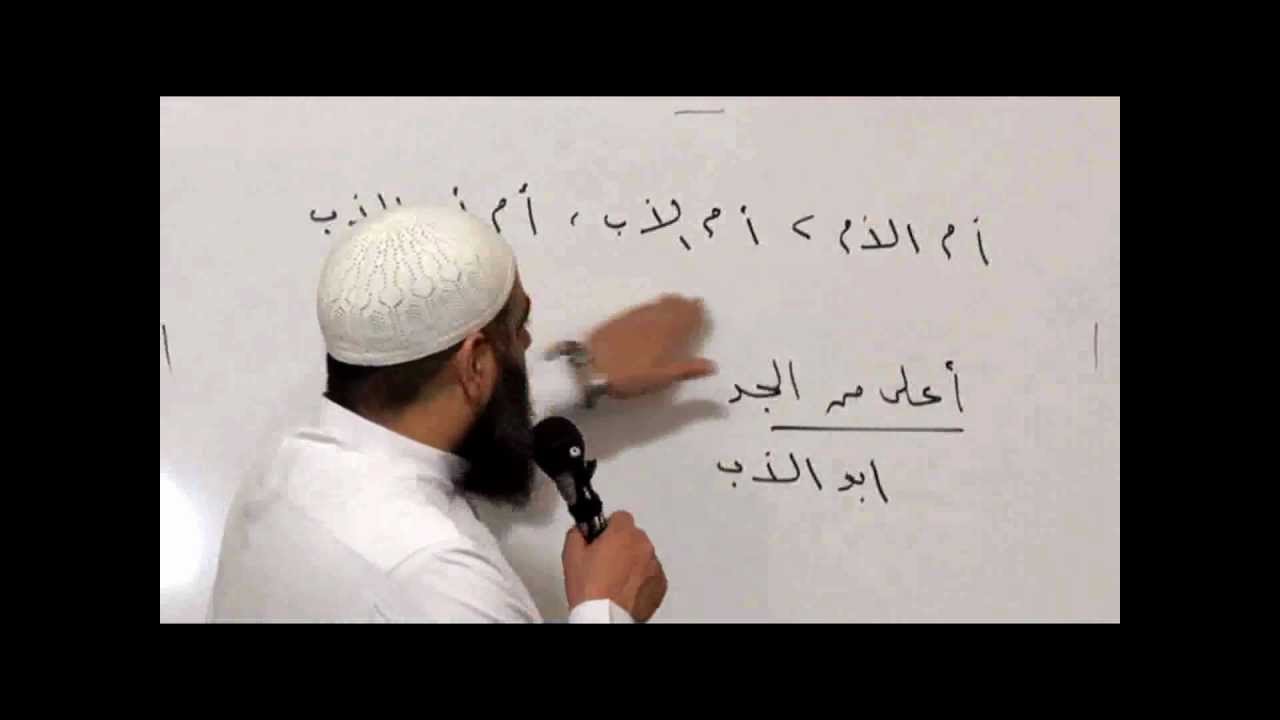 أم الأم > أم الأب ، أم الأب
أعلى من الجد
ابو الأب